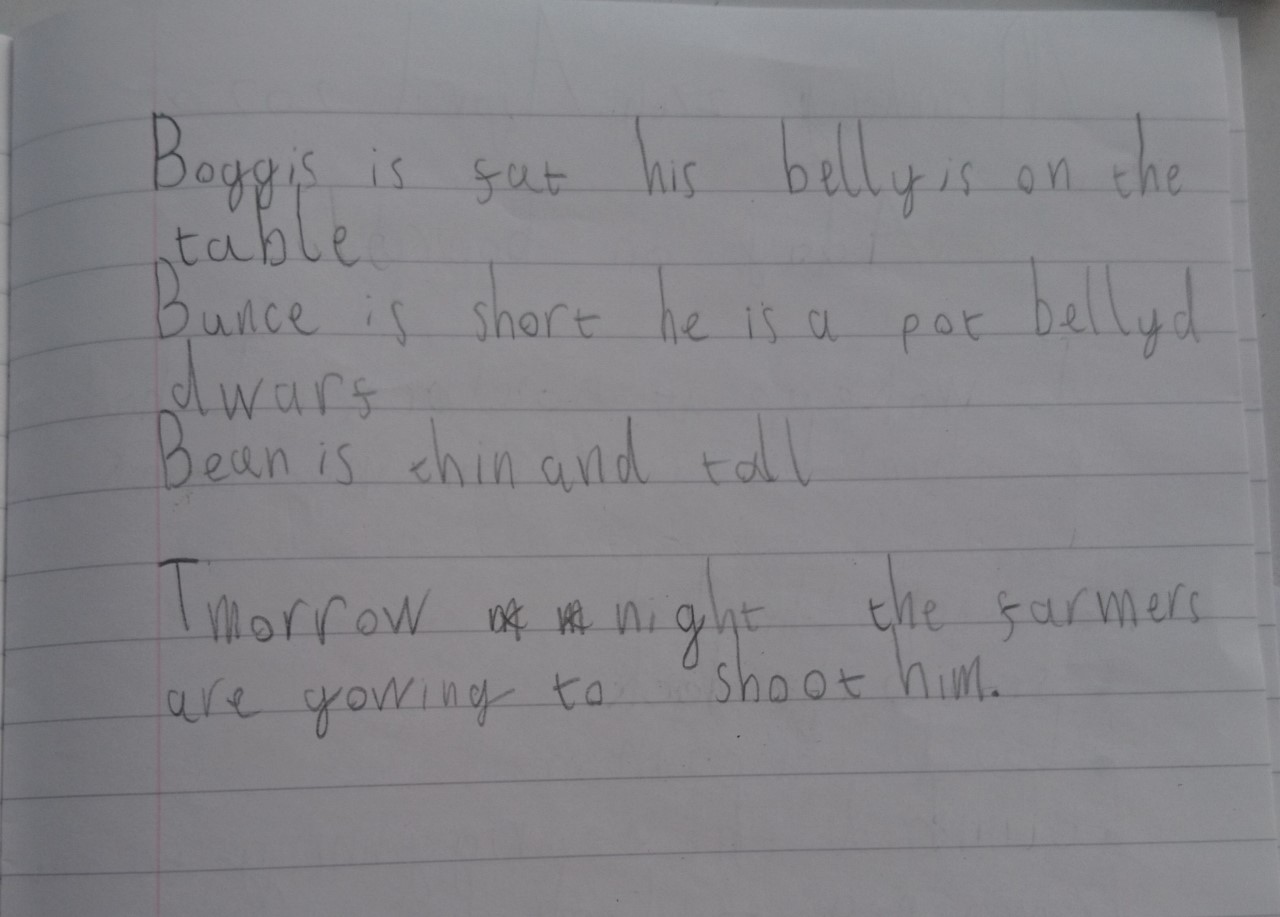 Boggis is fat his belly is on the
table
Bunce is short he is a pot bellyd
dwarf
Bean is thin and tall
Tmorrow night the farmers
are gowing to shoot him.